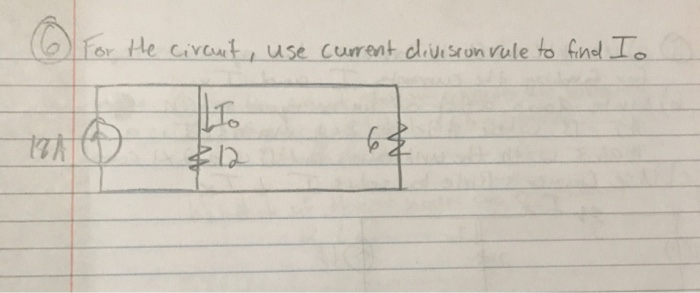 6 For the circuit, use current division rule to find Io
Io
18A
12
6